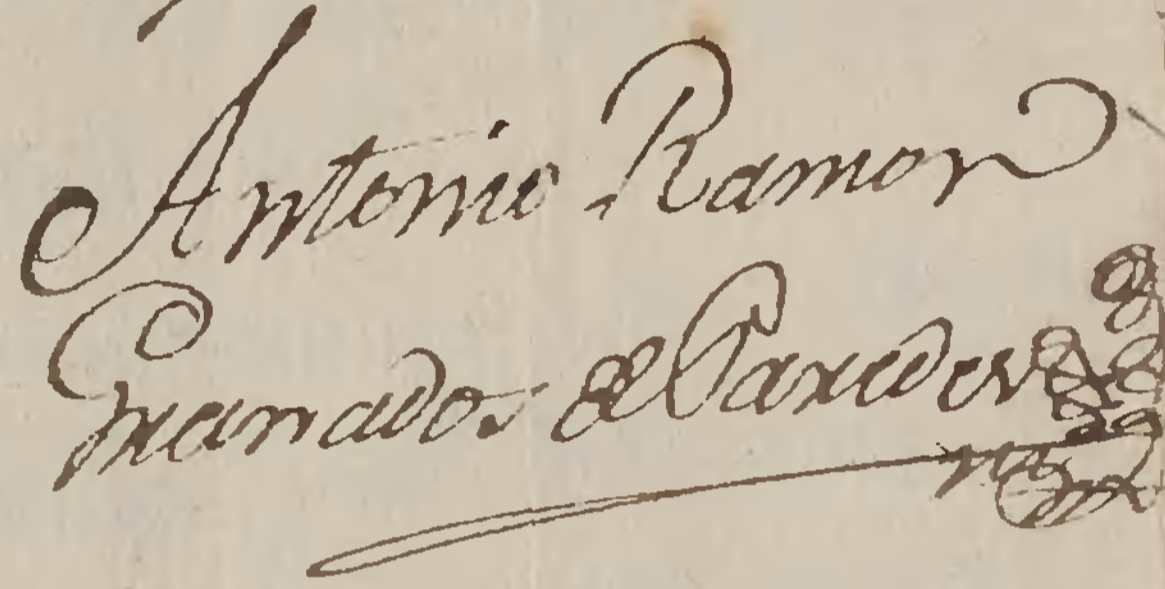 Antonio Ramon
Granados de Paredes